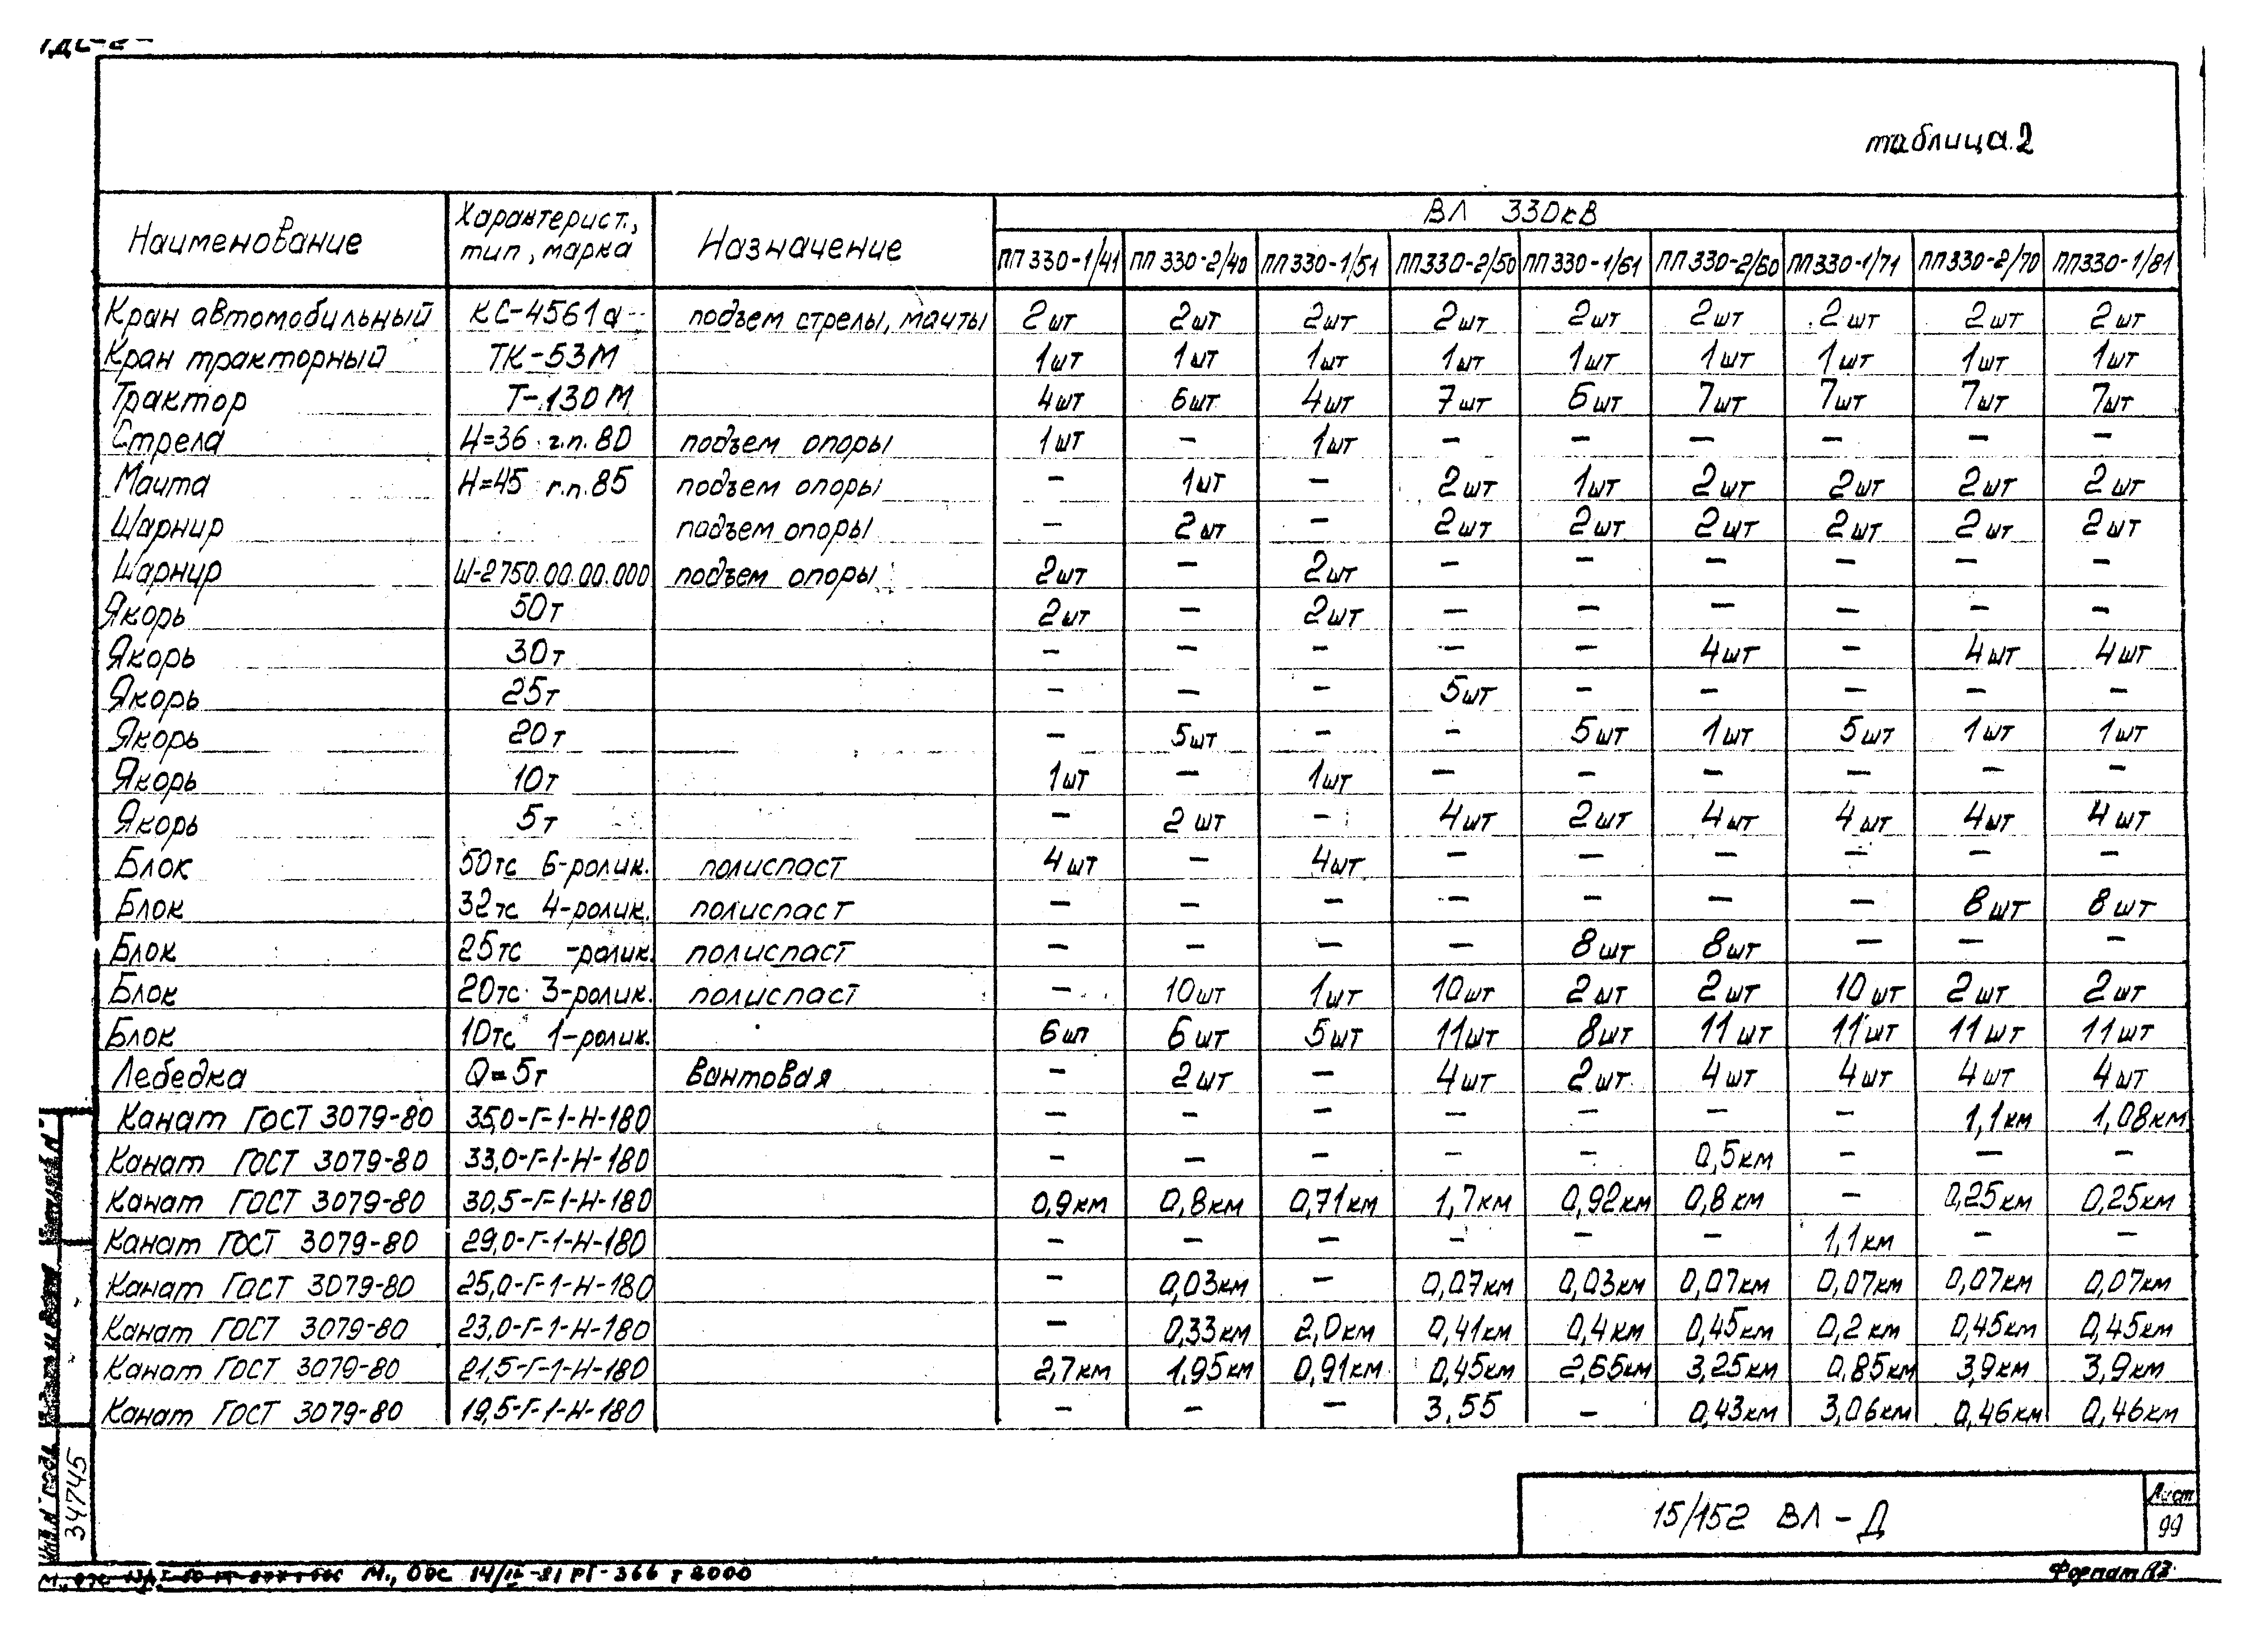 таблица.2
Наименование Характерист., тип, марка Назначение ВЛ 330кВ
ПП330-1/41 ПП330-2/40 ПП330-1/51 ПП330-2/50 ПП330-1/61 ПП330-2/60 ПП330-1/71 ПП330-2/70 ПП330-1/81
Кран автомобильный КС-4561а подъем стрелы, мачты 2шт 2шт 2шт 2шт 2шт 2шт 2шт 2шт 2шт
Кран тракторный ТК-53М 1шт 1шт 1шт 1шт 1шт 1шт 1шт 1шт 1шт
Трактор Т-130М 4шт 6шт 4шт 7шт 6шт 7шт 7шт 7шт 7шт
Стрела Н=36 г.п.80 подъем опоры 1шт – 1шт – – – – – –
Мачта Н=45 г.п.85 подъем опоры – 1шт – 2шт 1шт 2шт 2шт 2шт 2шт
Шарнир подъем опоры – 2шт – 2шт 2шт 2шт 2шт 2шт 2шт
Шарнир Ш-2750.00.00.000 подъем опоры 2шт – 2шт – – – – – –
Якорь 50т 2шт – 2шт – – – – – –
Якорь 30т – – – – – 4шт – 4шт 4шт
Якорь 25т – – – 5шт – – – – –
Якорь 20т – 5шт – – 5шт 1шт 5шт 1шт 1шт
Якорь 10т 1шт – 1шт – – – – – –
Якорь 5т – 2шт – 4шт 2шт 4шт 4шт 4шт 4шт
Блок 50тс 6-ролик. полиспаст 4шт – 4шт – – – – – –
Блок 32тс 4-ролик. полиспаст – – – – – – – 8шт 8шт
Блок 25тс -ролик. полиспаст – – – – 8шт 8шт – – –
Блок 20тс 3-ролик. полиспаст – 10шт 1шт 10шт 2шт 2шт 10шт 2шт 2шт
Блок 10тс 1-ролик. 6шт 6шт 5шт 11шт 8шт 11шт 11шт 11шт 11шт
Лебедка Q=5т Вантовая – 2шт – 4шт 2шт 4шт 4шт 4шт 4шт
Канат ГОСТ 3079-80 35,0-Г-1-Н-180 – – – – – – – 1,1км 1,08км
Канат ГОСТ 3079-80 33,0-Г-1-Н-180 – – – – – 0,5км – – –
Канат ГОСТ 3079-80 30,5-Г-1-Н-180 0,9км 0,8км 0,71км 1,7км 0,92км 0,8км – 0,25км 0,25км
Канат ГОСТ 3079-80 29,0-Г-1-Н-180 – – – – – – 1,1км – –
Канат ГОСТ 3079-80 25,0-Г-1-Н-180 – 0,03км – 0,07км 0,03км 0,07км 0,07км 0,07км 0,07км
Канат ГОСТ 3079-80 23,0-Г-1-Н-180 – 0,33км 2,0км 0,41км 0,4км 0,45км 0,2км 0,45км 0,45км
Канат ГОСТ 3079-80 21,5-Г-1-Н-180 2,7км 1,95км 0,91км 0,45км 2,65км 3,25км 0,85км 3,9км 3,9км
Канат ГОСТ 3079-80 19,5-Г-1-Н-180 – – – 3,55 – 0,43км 3,06км 0,46км 0,46км
347745
15/152 ВЛ-Д
Лист
99
М., ОФС 14/IV-81 РГ-366 т 2000
Формат